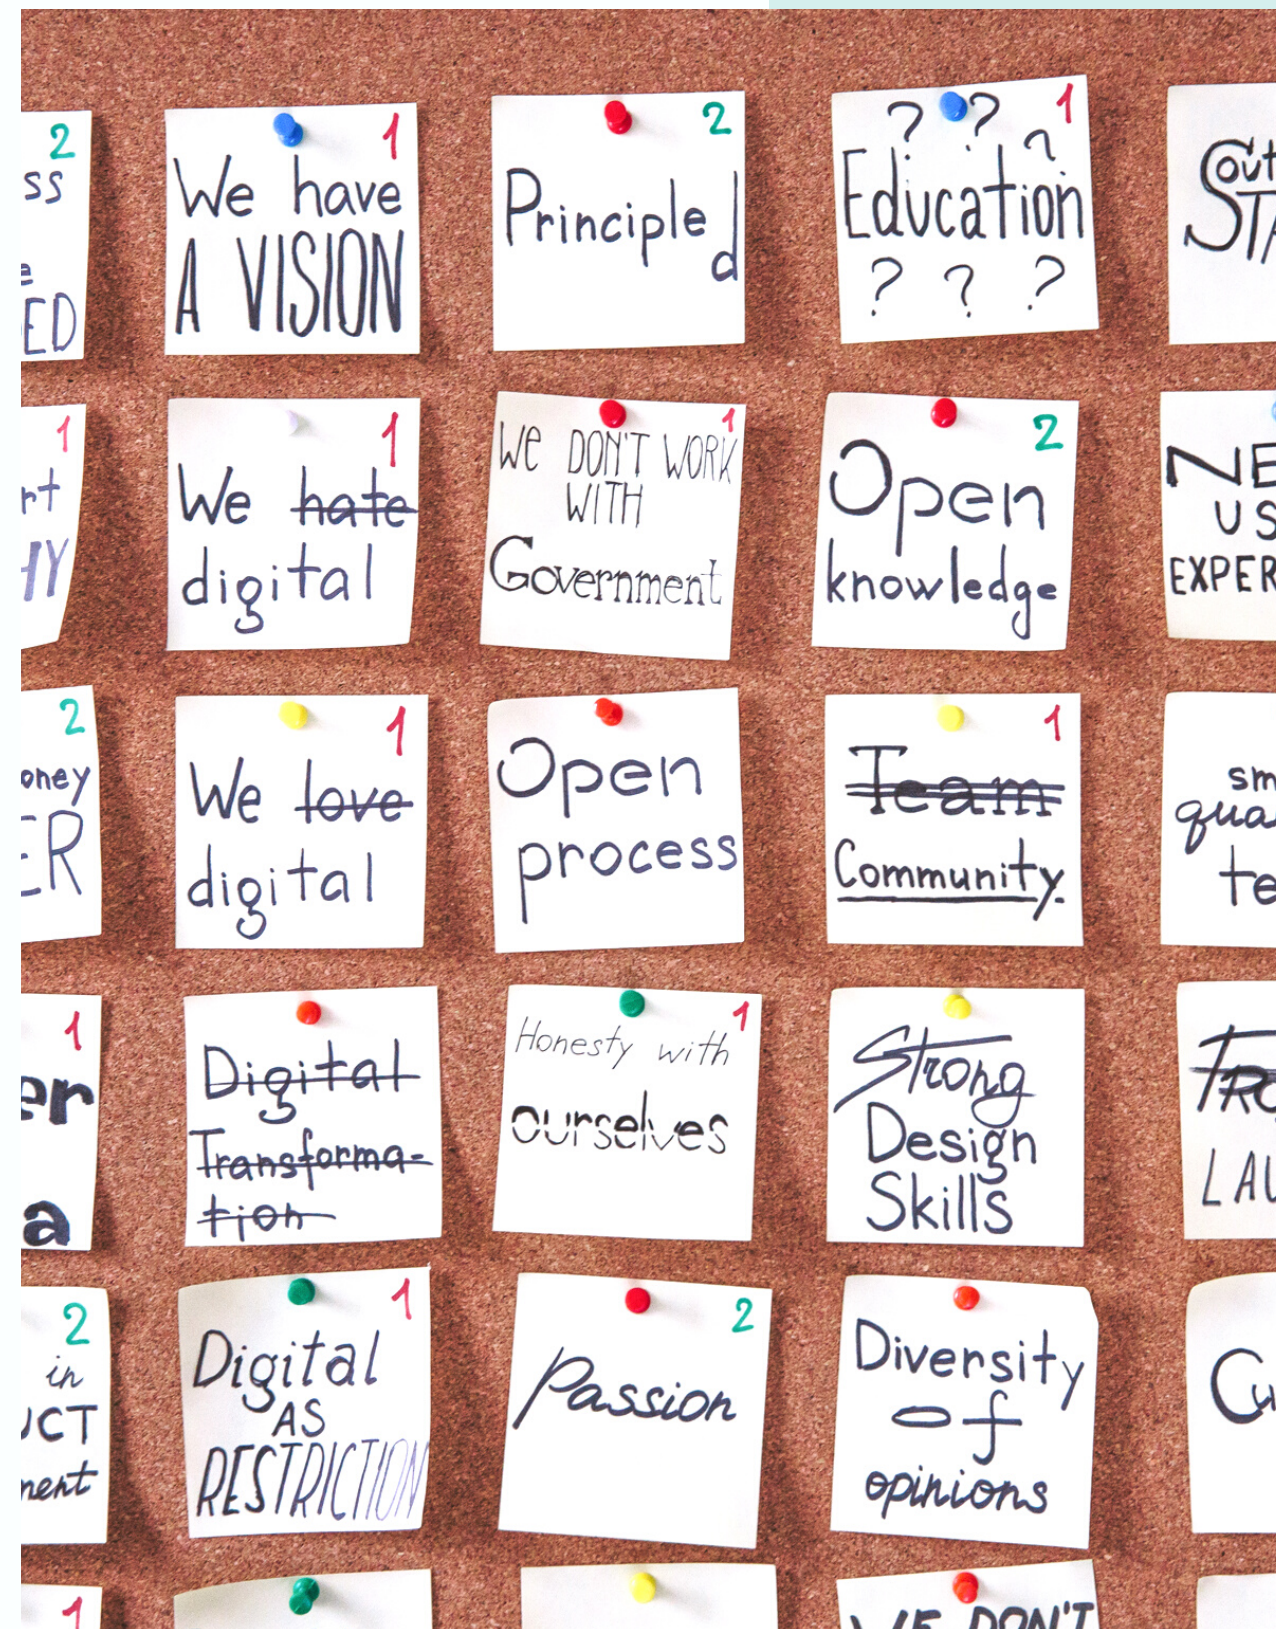 2
ss
e
ED
1
We have
A VISION
2
Principled
? ? 1
?
Education
? ? ?
Out
STA
1
rt
HY
1
We ~~hate~~
digital
1
We DON'T WORK
WITH
Government
2
Open
knowledge
NE
US
EXPER
2
oney
ER
1
We ~~love~~
digital
Open
process
1
~~Team~~
Community.
sm
qua
te
1
er
a
~~Digital~~
~~Transforma-~~
~~tion~~
1
Honesty with
ourselves
Strong
Design
Skills
LAU
2
in
UCT
ment
1
Digital
AS
RESTRICTION
2
Passion
Diversity
of
opinions
Cu
1
WE DON'T